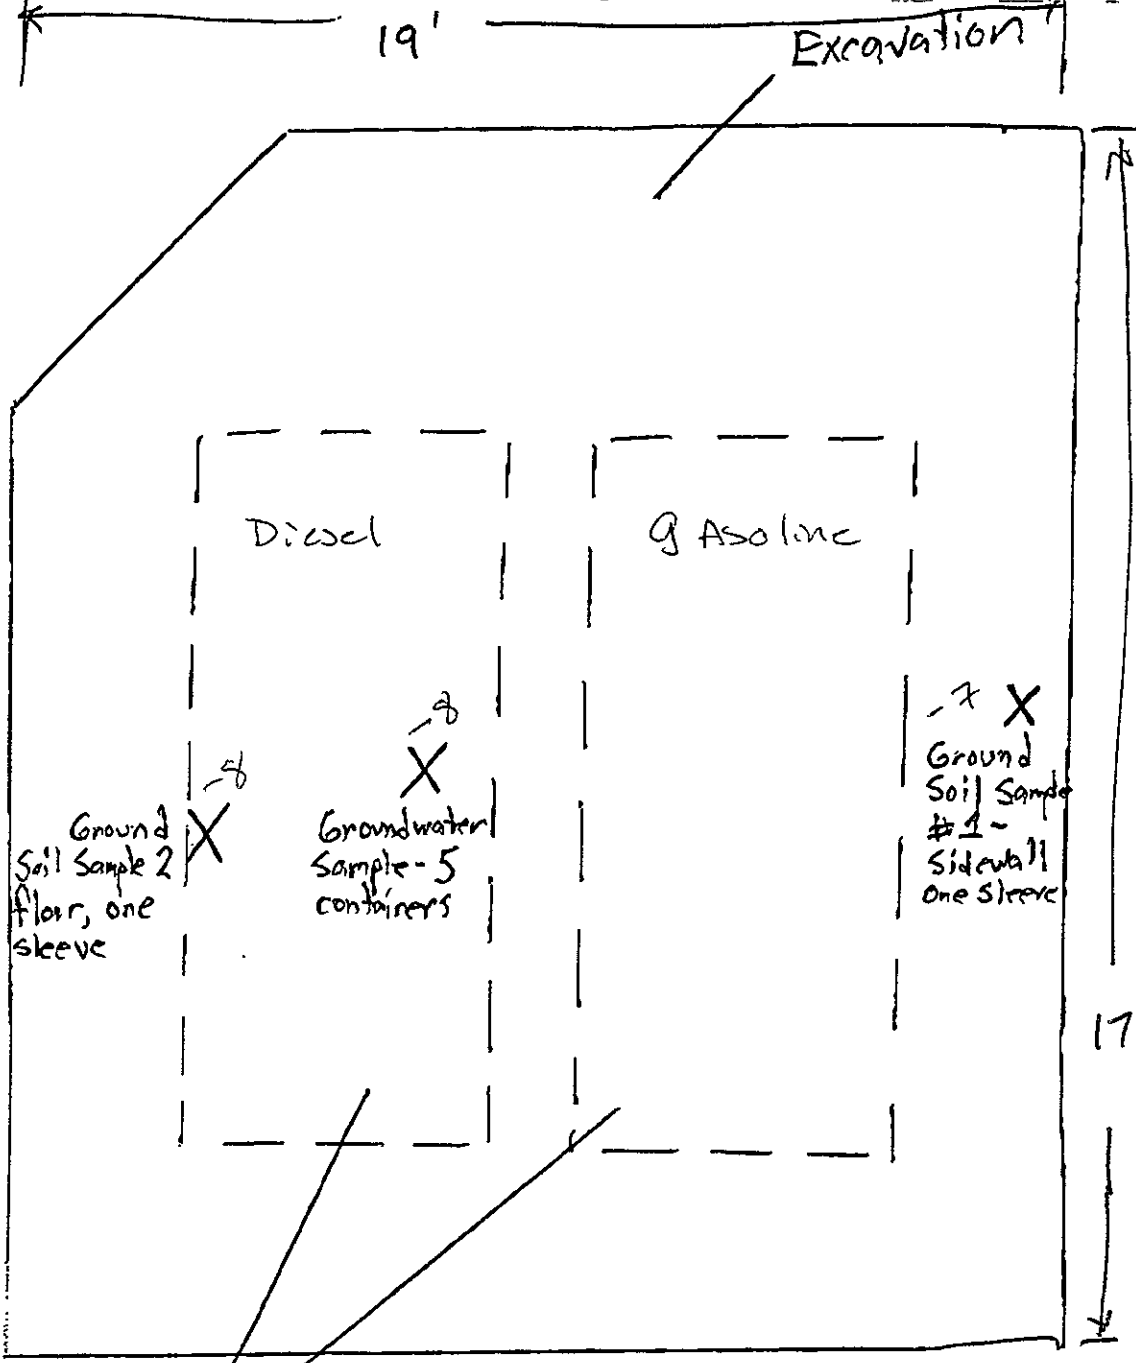 19'
Excavation
Diesel
gAsoline
-8
-7
-8
Ground
Soil Sample 2
floor, one
sleeve
Groundwater
Sample - 5
containers
Ground
Soil Sample
#1 -
Sidewall
One sleeve
17